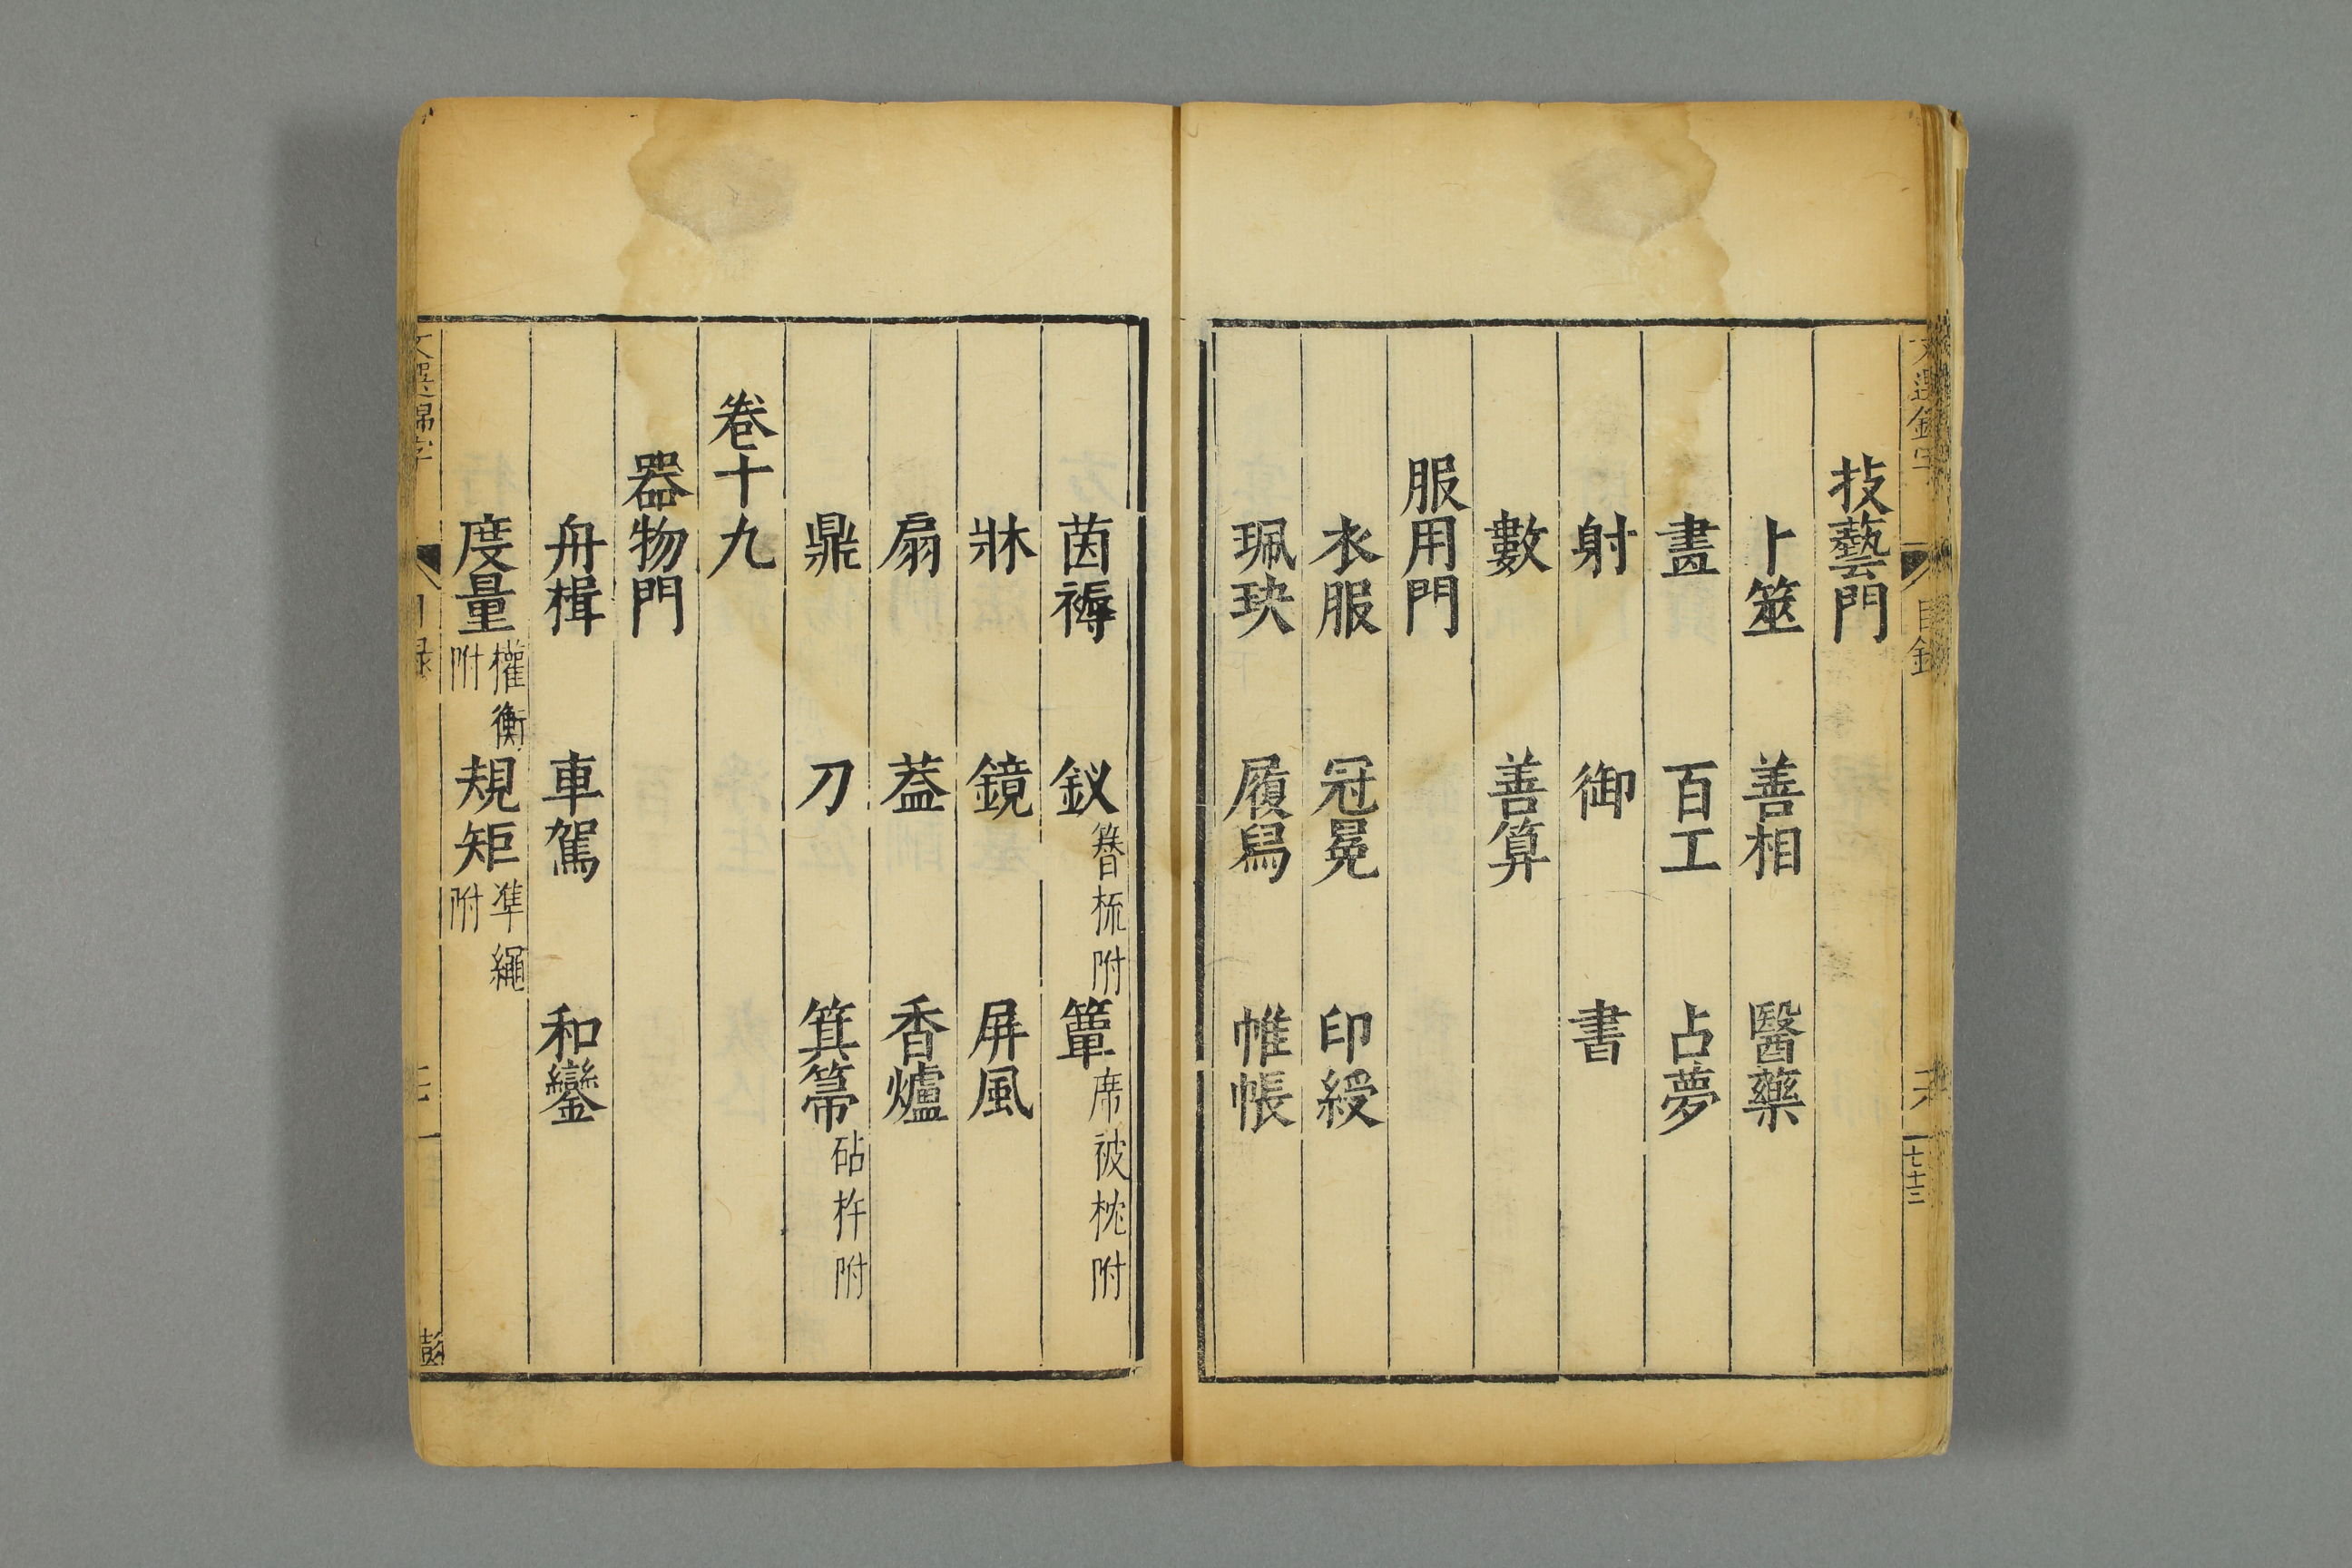 技藝門
卜筮 善相 醫藥
畫 百工 占夢
射 御 書
數 善算
服用門
衣服 冠冕 印綬
珮玦 履舄 帷帳
茵褥 釵簪梳附 簟席被枕附
牀 鏡 屏風
扇 葢 香爐
鼎 刀 箕箒砧杵附
卷十九
器物門
舟楫 車駕 和鑾
度量權衡附 規矩準繩附